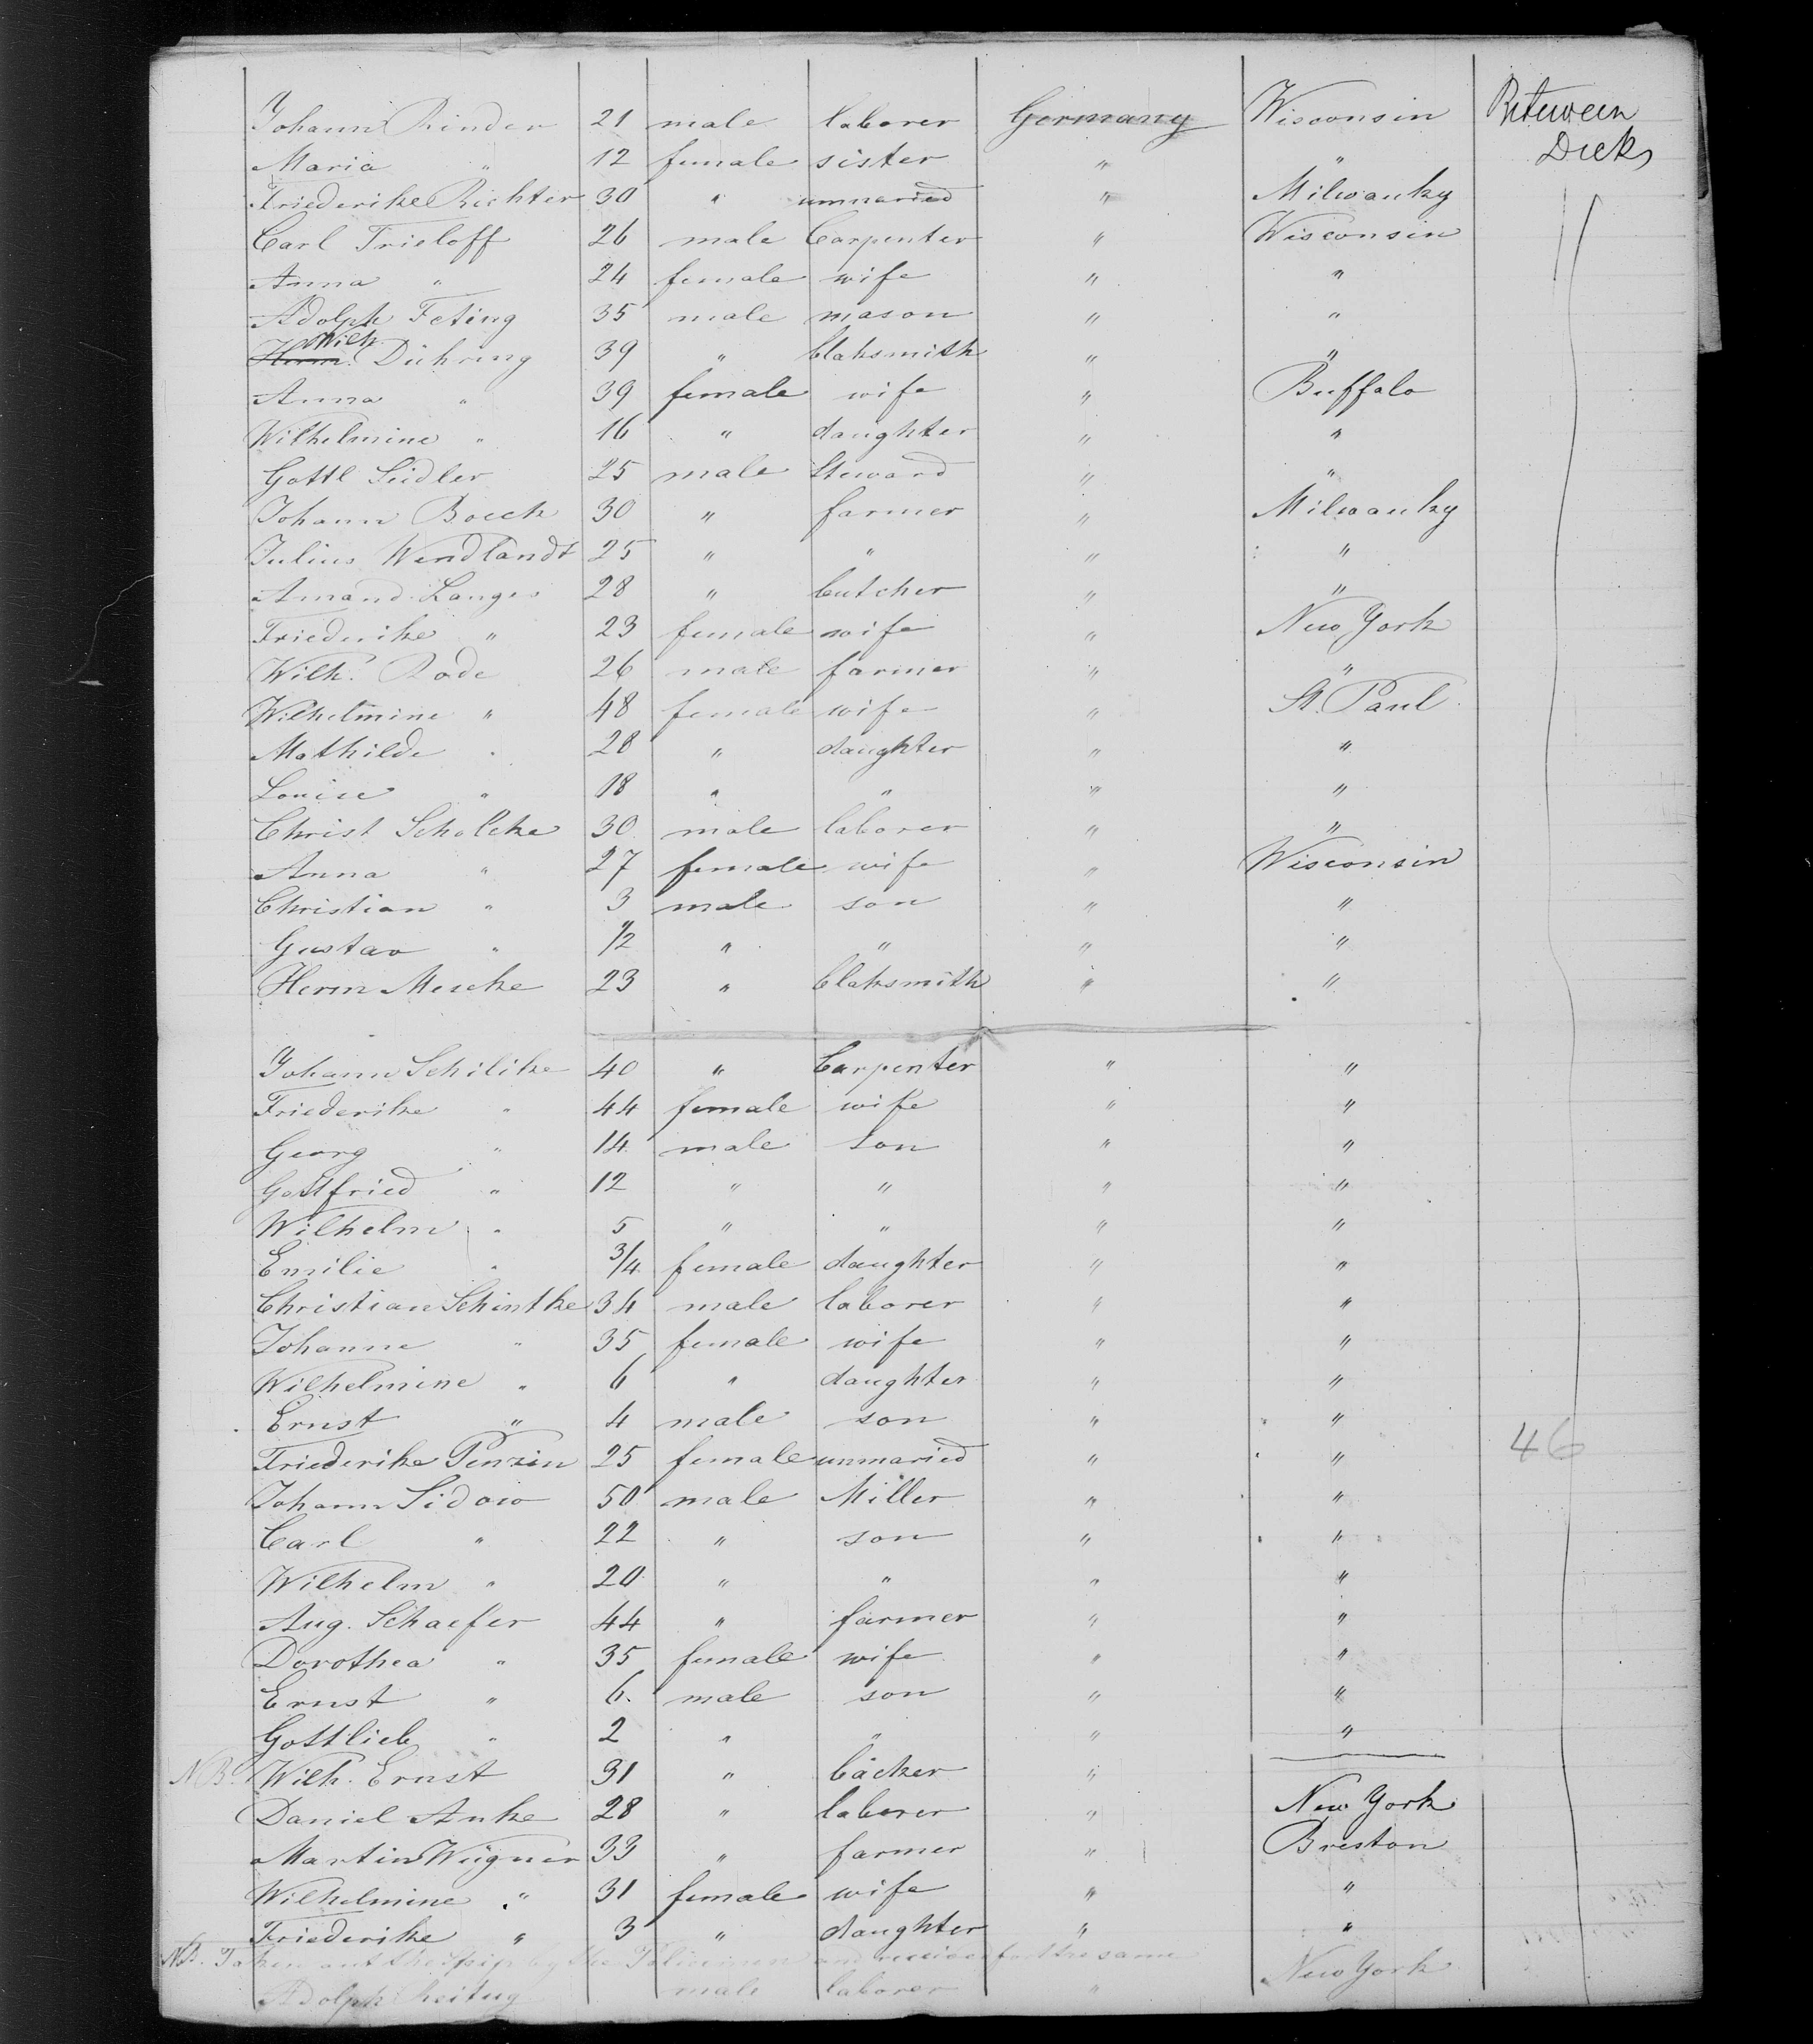 Johann Rinder 21 male laborer Germany Wisconsin Between
Deck
Maria " 12 female sister " "
Friederike Richter 30 " unmaried " Milwauky
Carl Trieloff 26 male Carpenter " Wisconsin
Anna " 24 female wife " "
Adolph Feting 35 male mason " "
Wilh.
Herm. Dühring 39 " blaksmith " "
Anna " 39 female wife " Buffalo
Wilhelmine " 16 " daughter " "
Gottl Seidler 25 male Steward " "
Johann Boeck 30 " farmer " Milwauky
Julius Wendlandt 25 " " " "
Amand Langes 28 " butcher " "
Friederike " 23 female wife " New York
Wilh. Rode 26 male farmer " "
Wilhelmine " 48 female wife " St. Paul
Mathilde " 28 " daughter " "
Louise " 18 " " " "
Christ Scholcke 30 male laborer " "
Anna " 27 female wife " Wisconsin
Christian " 3 male son " "
Gustav " 1/2 " " " "
Herm Mescke 23 " blaksmith " "
Johann Schilike 40 " Carpenter " "
Friederike " 44 female wife " "
Georg " 14 male son " "
Gottfried " 12 " " " "
Wilhelm " 5 " " " "
Emilie " 3/4 female daughter " "
Christian Schintke 34 male laborer " "
Johanne " 35 female wife " "
Wilhelmine " 6 " daughter " "
Ernst " 4 male son " "
46
Friederike Penzin 25 female unmaried " "
Johann Sidow 50 male Miller " "
Carl " 22 " son " "
Wilhelm " 20 " " " "
Aug. Schaefer 44 " farmer " "
Dorothea " 35 female wife " "
Ernst " 6 male son " "
Gottlieb " 2 " " " "
NB. Wilh. Ernst 31 " bäcker "
Daniel Anke 28 " laborer " New York
Martin Wügner 33 " farmer " Breston
Wilhelmine " 31 female wife " "
Friederike " 3 " daughter " "
NB. Taken out the ship by the Policemen and for the same
Adolph male laborer " New York